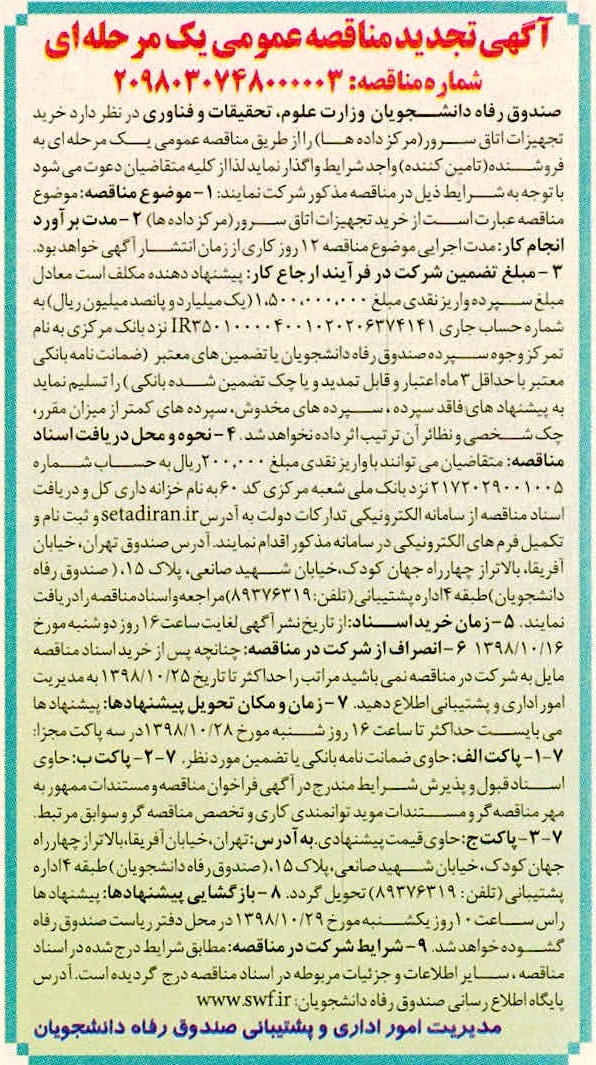 آگهی تجدید مناقصه عمومی یک مرحله ای
شماره مناقصه: ۲۰۹۸۰۳۰۷۴۸۰۰۰۰۰۳
صندوق رفاه دانشجویان وزارت علوم، تحقیقات و فناوری در نظر دارد خرید
تجهیزات اتاق سرور(مرکز داده ها) را از طریق مناقصه عمومی یک مرحله ای به
فروشنده(تامین کننده) واجد شرایط واگذار نماید لذا از کلیه متقاضیان دعوت می شود
با توجه به شرایط ذیل در مناقصه مذکور شرکت نمایند: ۱- موضوع مناقصه: موضوع
مناقصه عبارت است از خرید تجهیزات اتاق سرور(مرکز داده ها) ۲- مدت برآورد
انجام کار: مدت اجرایی موضوع مناقصه ۱۲ روز کاری از زمان انتشار آگهی خواهد بود.
۳- مبلغ تضمین شرکت در فرآیند ارجاع کار: پیشنهاد دهنده مکلف است معادل
مبلغ سپرده واریز نقدی مبلغ ۱,۵۰۰,۰۰۰,۰۰۰ (یک میلیارد و پانصد میلیون ریال) به
شماره حساب جاری IR۳۵۰۱۰۰۰۰۴۰۰۱۰۲۰۲۰۶۳۷۴۱۴۱ نزد بانک مرکزی به نام
تمرکز وجوه سپرده صندوق رفاه دانشجویان یا تضمین های معتبر (ضمانت نامه بانکی
معتبر با حداقل ۳ ماه اعتبار و قابل تمدید و یا چک تضمین شده بانکی) را تسلیم نماید
به پیشنهاد های فاقد سپرده، سپرده های مخدوش، سپرده های کمتر از میزان مقرر،
چک شخصی و نظائر آن ترتیب اثر داده نخواهد شد. ۴- نحوه و محل دریافت اسناد
مناقصه: متقاضیان می توانند با واریز نقدی مبلغ ۲۰۰,۰۰۰ ریال به حساب شماره
۲۱۷۲۰۲۹۰۰۱۰۰۵ نزد بانک ملی شعبه مرکزی کد ۶۰ به نام خزانه داری کل و دریافت
اسناد مناقصه از سامانه الکترونیکی تدارکات دولت به آدرس setadiran.ir و ثبت نام و
تکمیل فرم های الکترونیکی در سامانه مذکور اقدام نمایند. آدرس صندوق تهران، خیابان
آفریقا، بالاتر از چهارراه جهان کودک، خیابان شهید صانعی، پلاک ۱۵، ( صندوق رفاه
دانشجویان) طبقه ۴ اداره پشتیبانی (تلفن: ۸۹۳۷۶۳۱۹) مراجعه و اسناد مناقصه را دریافت
نمایند. ۵- زمان خرید اسناد: از تاریخ نشر آگهی لغایت ساعت ۱۶ روز دو شنبه مورخ
۱۳۹۸/۱۰/۱۶ ۶- انصراف از شرکت در مناقصه: چنانچه پس از خرید اسناد مناقصه
مایل به شرکت در مناقصه نمی باشید مراتب را حداکثر تا تاریخ ۱۳۹۸/۱۰/۲۵ به مدیریت
امور اداری و پشتیبانی اطلاع دهید. ۷- زمان و مکان تحویل پیشنهادها: پیشنهاد ها
می بایست حداکثر تا ساعت ۱۶ روز شنبه مورخ ۱۳۹۸/۱۰/۲۸ در سه پاکت مجزا:
۷-۱- پاکت الف: حاوی ضمانت نامه بانکی یا تضمین مورد نظر. ۷-۲- پاکت ب: حاوی
اسناد قبول و پذیرش شرایط مندرج در آگهی فراخوان مناقصه و مستندات ممهور به
مهر مناقصه گر و مستندات موید توانمندی کاری و تخصص مناقصه گر و سوابق مرتبط.
۷-۳- پاکت ج: حاوی قیمت پیشنهادی. به آدرس: تهران، خیابان آفریقا، بالاتر از چهارراه
جهان کودک، خیابان شهید صانعی، پلاک ۱۵، ( صندوق رفاه دانشجویان) طبقه ۴ اداره
پشتیبانی (تلفن: ۸۹۳۷۶۳۱۹) تحویل گردد. ۸- بازگشایی پیشنهادها: پیشنهاد ها
راس ساعت ۱۰ روز یکشنبه مورخ ۱۳۹۸/۱۰/۲۹ در محل دفتر ریاست صندوق رفاه
گشوده خواهد شد. ۹- شرایط شرکت در مناقصه: مطابق شرایط درج شده در اسناد
مناقصه، سایر اطلاعات و جزئیات مربوطه در اسناد مناقصه درج گردیده است. آدرس
پایگاه اطلاع رسانی صندوق رفاه دانشجویان: www.swf.ir
مدیریت امور اداری و پشتیبانی صندوق رفاه دانشجویان